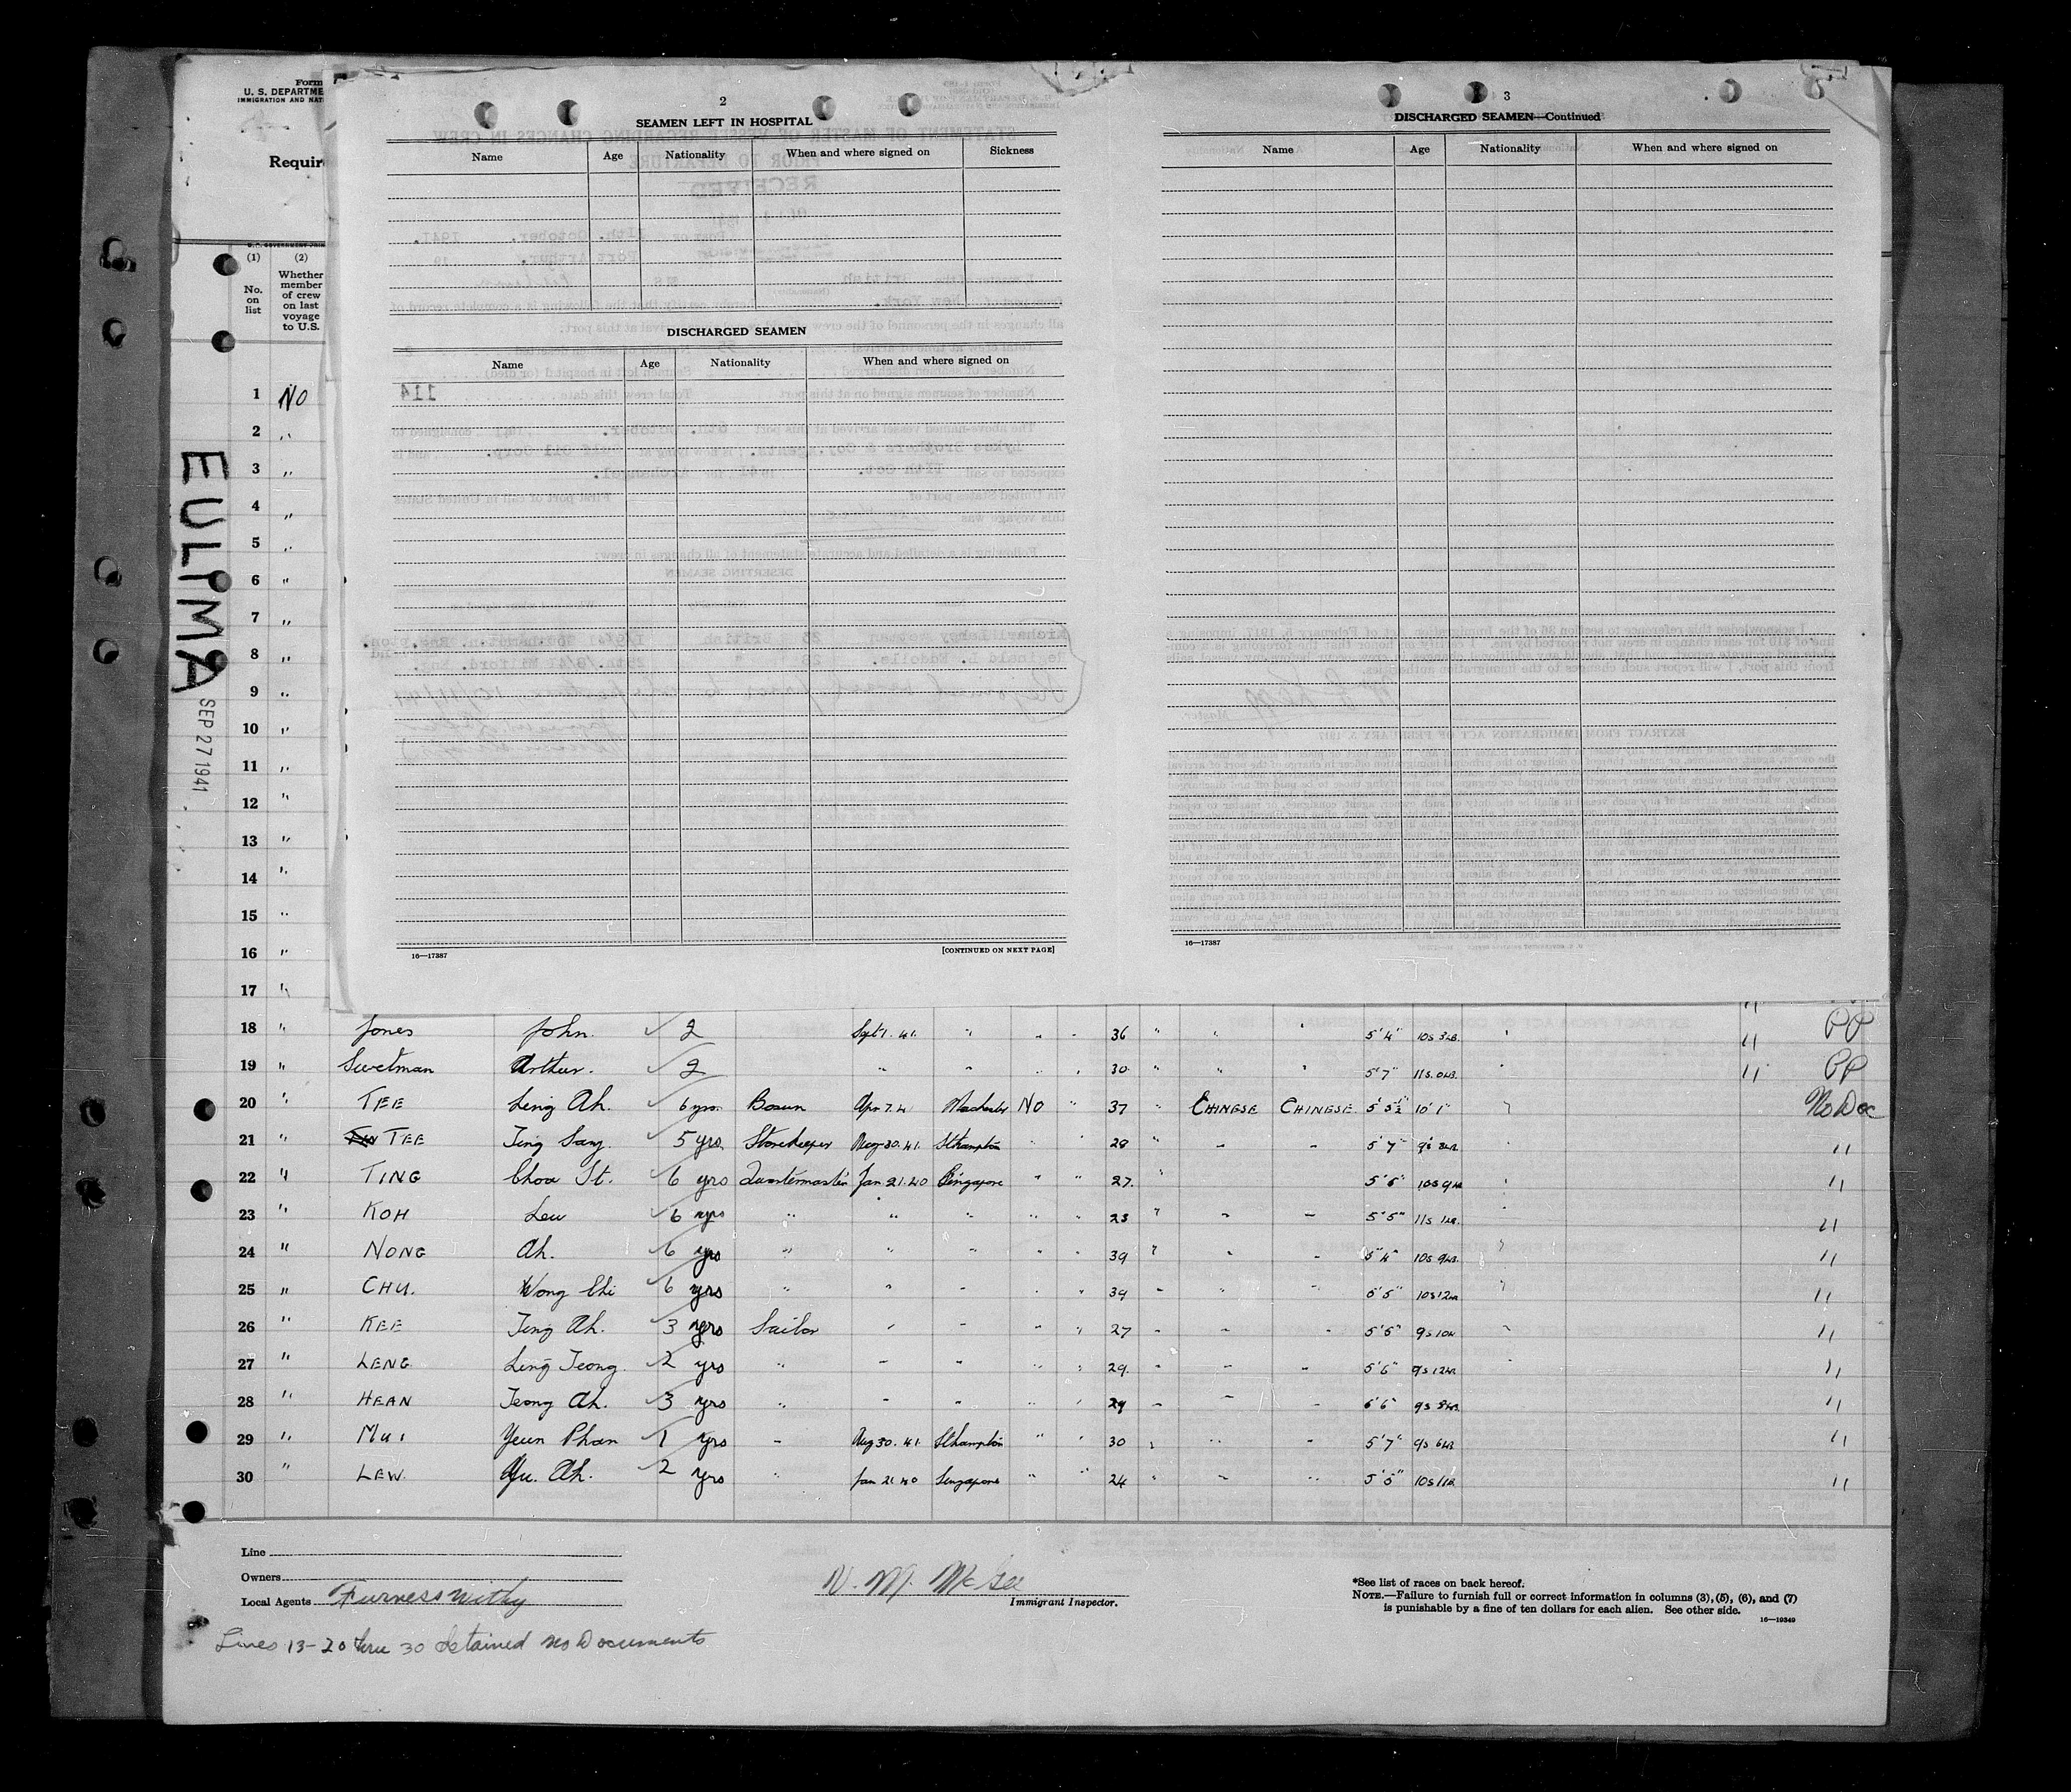 Form
U. S. DEPARTME
IMMIGRATION AND NAT
Requir
(1) (2)
No. on list
Whether member of crew on last voyage to U.S.
EULIMA
SEP 27 1941
2
SEAMEN LEFT IN HOSPITAL
Name Age Nationality When and where signed on Sickness
DISCHARGED SEAMEN
Name Age Nationality When and where signed on
16—17387 [CONTINUED ON NEXT PAGE]
3
DISCHARGED SEAMEN—Continued
Name Age Nationality When and where signed on
16—17387
1 NO
2 "
3 "
4 "
5 "
6 "
7 "
8 "
9 "
10 "
11 "
12 "
13 "
14 "
15 "
16 "
17 "
18 " Jones John. ✓ 2 Sept 1. 41. " " " 36 " " " 5'4" 10s 3LB. " 11 PP
19 " Swetman Arthur. ✓ 2 " " " " 30 " " " 5'7" 11s. 0LB. " 11 PP
20 " TEE Leng Ah. ✓ 6 yrs. Bosun Apr 7. 41 Manchester NO " 37 " CHINESE CHINESE 5'5½ 10'1" " No Doc
21 " TEE Teng Sang ✓ 5 yrs. Storekeeper Aug 30. 41. Sthampton " " 28 " " " 5'7" 9s 8LB. 11
22 " TING Chou St. ✓ 6 yrs Quartermaster Jan 21. 40 Singapore " " 27. " 5'6" 10s 9LB " 11
23 " KOH Lew ✓ 6 yrs " " " " " 23 " " " 5'5" 11s 1LB. " 11
24 " NONG Ah. ✓ 6 yrs " " " " " 39 " " " 5'4" 10s 9LB. " 11
25 " CHU. Wong Chi ✓ 6 yrs " " " " " 39 " " " 5'5" 10s 12LB " 11
26 " KEE Teng Ah. ✓ 3 yrs Sailor " " " " 27 " " " 5'5" 9s 10LB " 11
27 " LENG Leng Teong. ✓ 2 yrs " " " " " 29. " " " 5'6" 9s 12LB. " 11
28 " HEAN Teong Ah. ✓ 3 yrs " " " " " 29 " " " 5'6" 9s 8LB. 11
29 " MUI Yeun Phan ✓ 1 yrs " Aug 30. 41. Sthampton " " 30 " " " 5'7" 9s 6LB 11
30 " LEW. Yu. Ah. ✓ 2 yrs " Jan 21. 40 Singapore " " 24 " " " 5'5" 10s 11LB. 11
Line
Owners
Local Agents Furness Withy
N. M. McGee
Immigrant Inspector.
*See list of races on back hereof.
NOTE.—Failure to furnish full or correct information in columns (3), (5), (6), and (7)
is punishable by a fine of ten dollars for each alien. See other side.
16—19349
Lines 13-20 thru 30 detained no Documents